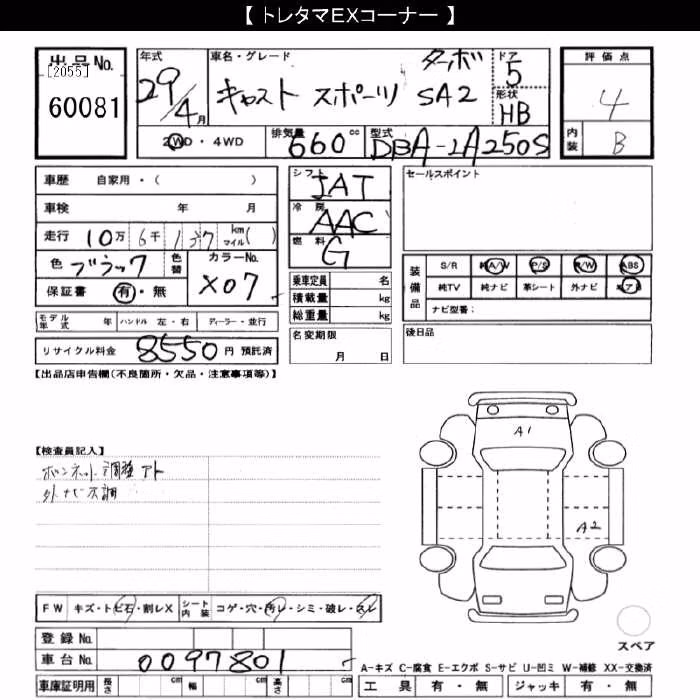 【 トレタマEXコーナー 】
出品No. [2055] 60081
年式 29/4月
車名・グレード キャスト スポーツ ターボ SA2
ドア 5
形状 HB
2WD・4WD
排気量 660 cc
型式 DBA-LA250S
評価点 4
内装 B
車歴 自家用・( )
車検 年 月
走行 10万 6千 km マイル( )
色 ブラック 色替
カラーNo. X07
保証書 有・無
シフト IAT
冷房 AAC
燃料 G
乗車定員 名
積載量 kg
総重量 kg
名変期限 月 日
モデル年式 年 ハンドル 左・右 ディーラー・並行
リサイクル料金 8550 円 預託済
セールスポイント
装備品
S/R 純A/W P/S P/W ABS
純TV 純ナビ 革シート 外ナビ エアB
ナビ型番:
後日品
【出品店申告欄(不良箇所・欠品・注意事項等)】
【検査員記入】
ボンネット 調整 アト
外ナビ 不調
A1
A2
FW キズ・トビ石・割レX シート内装 コゲ・穴・汚レ・シミ・破レ・スレ
スペア
登録No.
車台No. 0097801
A-キズ C-腐食 E-エクボ S-サビ U-凹ミ W-補修 XX-交換済
車庫証明用 長さ cm 幅 cm 高さ cm
工具 有・無 ジャッキ 有・無